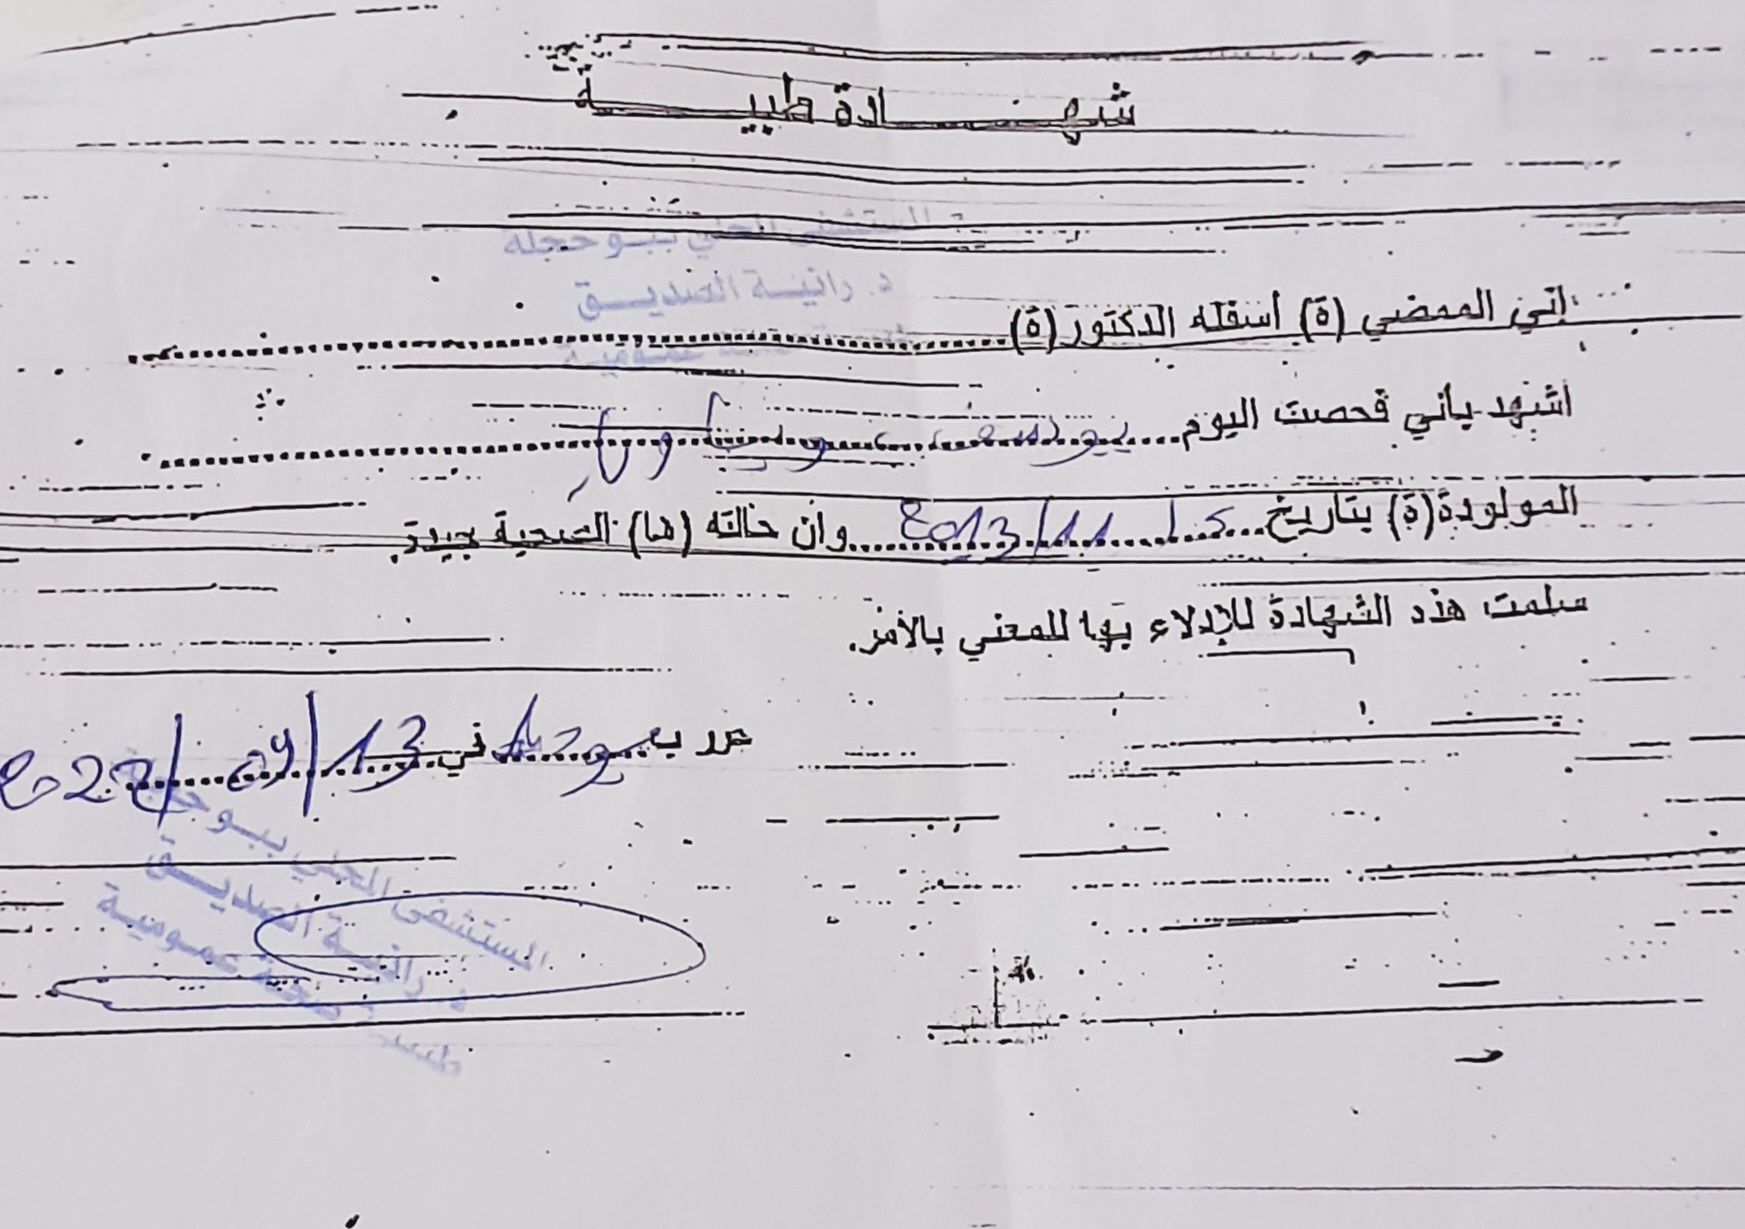 شهادة طبية
المستشفى المحلي ببوحجلة
د. رانية الصديق
إني الممضي (ة) أسفله الدكتور (ة)
اشهد بأني فحصت اليوم يوسف
المولودة(ة) بتاريخ 2013/11/ وأن حالته (ها) الصحية جيدة.
سلمت هذه الشهادة للإدلاء بها للمعني بالأمر.
حرر ب في 13/09/2022
المستشفى المحلي ببوحجلة
د. رانية الصديق
طبيبة صحة عمومية